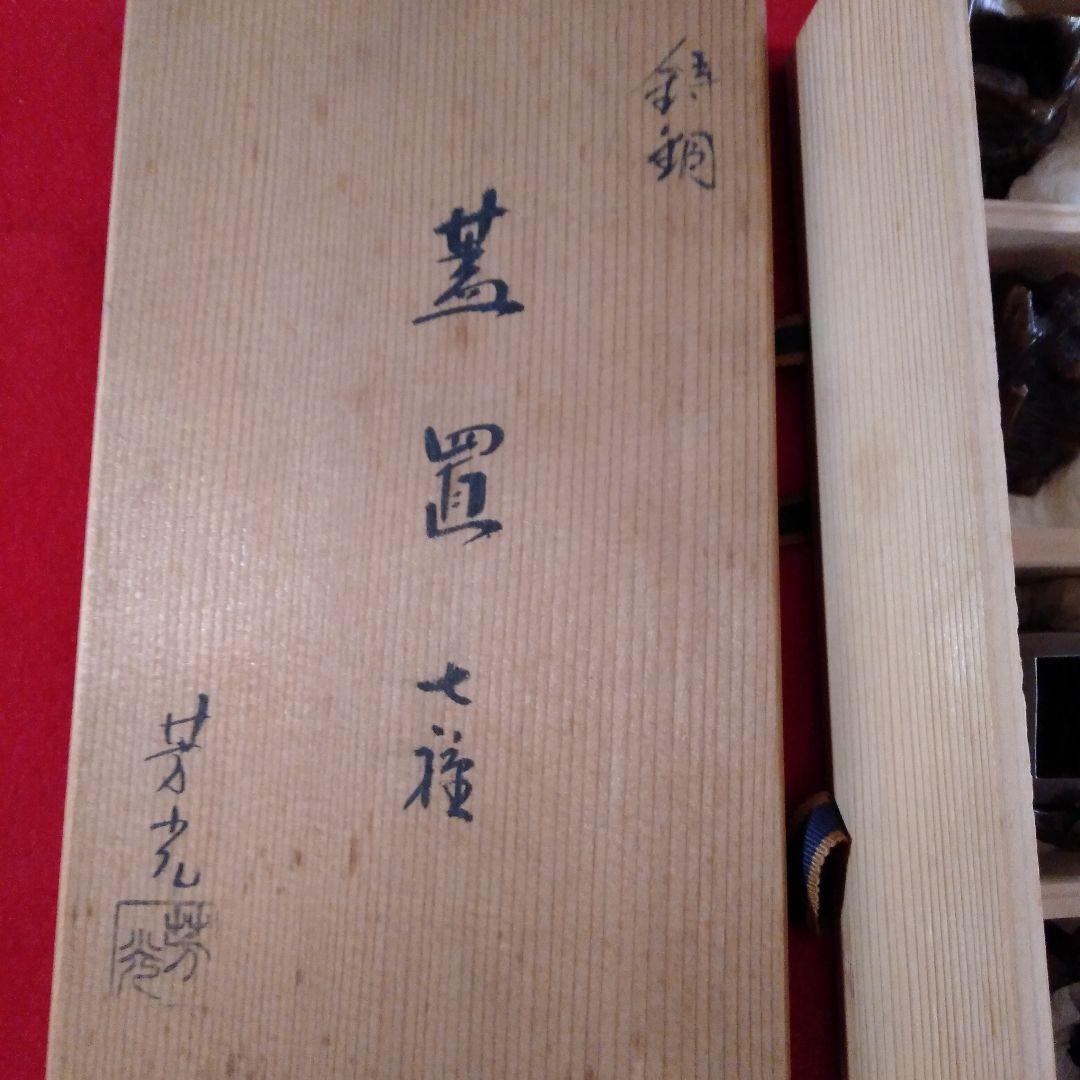 鋳銅
蓋置
七種
芳光
芳光